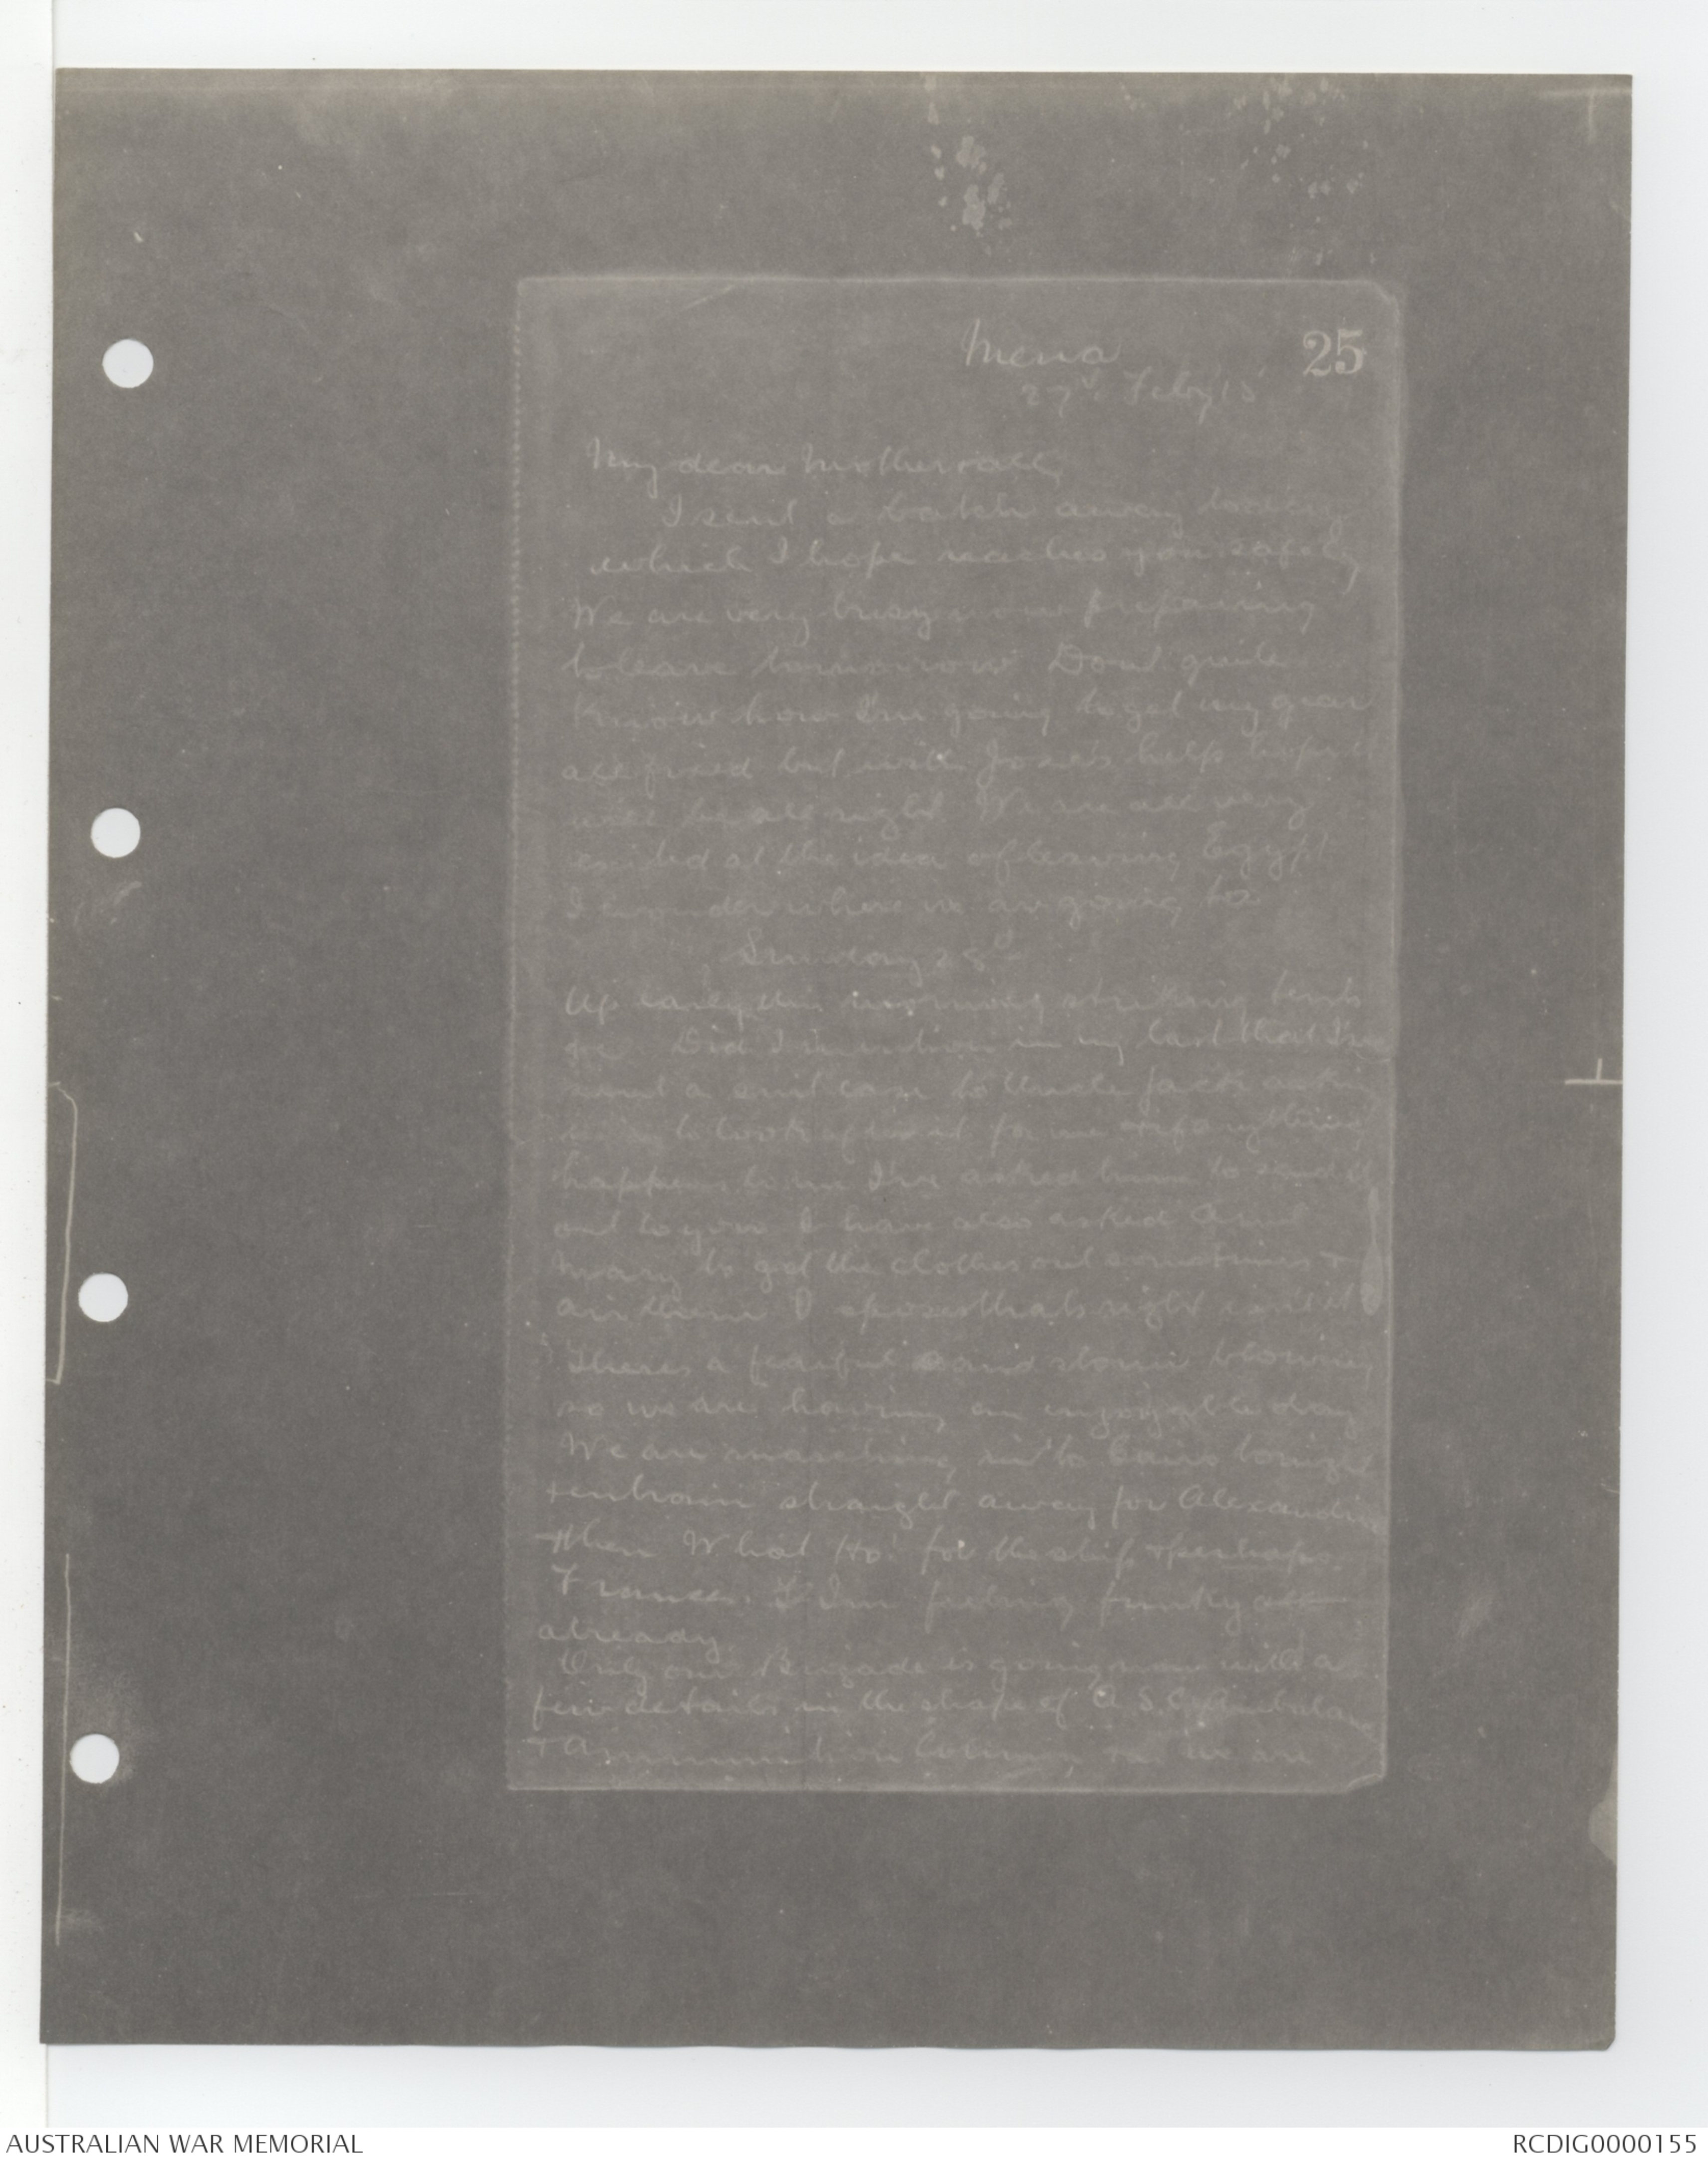 Mena
25
27th Feby 15
My dear Mother & all,
I sent a batch away today
which I hope reaches you safely
We are very busy now preparing
to leave tomorrow. Dont quite
know how I'm going to get my gear
all fixed but with help hope it
will be all right. We are all very
excited at the idea of leaving Egypt
I wonder where we are going to
Sunday 28th
Up early this morning striking tents
Did I mention in my last that I've
sent a suit case to Uncle Jack asking
him to look after it for me & if anything
happens to me I've asked him to send it
out to you. I have also asked Aunt
Mary to get the clothes out sometimes &
air them I spose thats right isn't it
Theres a fearful sand storm blowing
so we are having an enjoyable day
We are marching in to Cairo tonight
& entrain straight away for Alexandria
& then What Ho! for the ship & perhaps
France. I'm feeling funky
already
Only our Brigade is going now with a
few details in the shape of A.S.C. Ambulance
& Ammunition Column, we are
AUSTRALIAN WAR MEMORIAL
RCDIG0000155